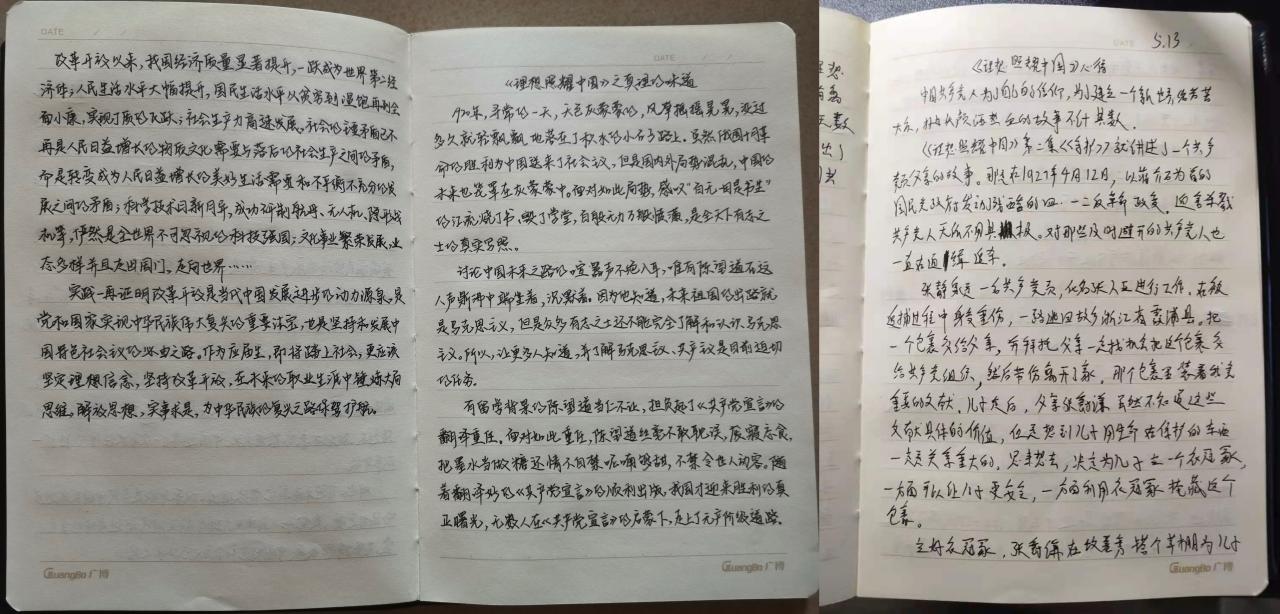 DATE / /
改革开放以来，我国经济质量显著提升，一跃成为世界第二经
济体；人民生活水平大幅提升，国民生活水平从贫穷到温饱再到全
面小康，实现了质的飞跃；社会生产力高速发展。社会的主要矛盾已不
再是人民日益增长的物质文化需要与落后的社会生产之间的矛盾，
而是转变成为人民日益增长的美好生活需要和不平衡不充分的发
展之间的矛盾；科学技术日新月异，成功研制航母、无人机、隐形战
机等，俨然是全世界不可忽视的科技强国；文化事业繁荣发展，业
态多样并且走出国门、走向世界……
实践一再证明改革开放是当代中国发展进步的动力源泉，是
党和国家实现中华民族伟大复兴的重要法宝，也是坚持和发展中
国特色社会主义的必由之路。作为应届生，即将踏上社会，更应该
坚定理想信念，坚持改革开放，在未来的职业生涯中锤炼大局
思维。解放思想，实事求是，为中华民族的复兴之路保驾护航。
GuangBo 广博
DATE / /
《理想照耀中国》之真理的味道
1920年，寻常的一天，天色灰蒙蒙的，风摩摇摇晃晃，没过
多久就轻飘飘地落在了秋水的小石子路上。虽然俄国十月革
命的胜利为中国送来了社会主义，但是国内外局势混乱，中国的
未来也笼罩在灰蒙蒙中。面对如此局势，感叹“百无一用是书生”
的江流烧了书，毁了学堂，自般无力万般愤懑，是全天下有志之
士的真实写照。
讨论中国未来之路的喧嚣声不绝入耳，唯有陈望道在这
人声鼎沸中端坐着，沉默着。因为他知道，未来祖国的出路就
是马克思主义，但是众多有志之士还不能完全了解和认识马克思
主义。所以，让更多人知道，并了解马克思主义、共产主义是目前迫切
的任务。
有留学背景的陈望道当仁不让，担负起了《共产党宣言》的
翻译重任。面对如此重任，陈望道丝毫不敢耽误，废寝忘食，
把墨水当做糖还情不自禁呢喃够甜，不禁令世人动容。随
着翻译好的《共产党宣言》的顺利出版，我国才迎来胜利的真
正曙光，无数人在《共产党宣言》的启蒙下，走上了无产阶级道路。
GuangBo 广博
DATE 5.13
《理想照耀中国》心得
中国共产党人为了自己的信仰，为了建立一个新世界，他们苦
大众，抛头颅洒热血的故事不计其数。
《理想照耀中国》第二集《守护》就讲述了一个共产
党员父亲的故事。那是在1927年4月12日，以蒋介石为首的
国民党政府发动残酷的四·一二反革命政变，迫害杀戮
共产党人无所不用其极。对那些及时避开的共产党人也
一直在追缉逃车。
张静泉是一名共产党员，化名张人亚进行工作，在被
追捕过程中身受重伤，一路逃回故乡浙江省霞浦县。把
一个包裹交给父亲，并拜托父亲一定找机会把这个包裹交
给共产党组织，然后带伤离开了家，那个包裹里装着我党
重要的文献。儿子走后，父亲张爵谦虽然不知道这些
文献具体的价值，但是想到儿子用生命在保护的东西
一定是关系重大的，思来想去，决定为儿子立一个衣冠冢，
一方面可以让儿子更安全，一方面利用衣冠冢掩藏这个
包裹。
立好衣冠冢，张爵谦在故墓旁搭个草棚为儿子
GuangBo 广博